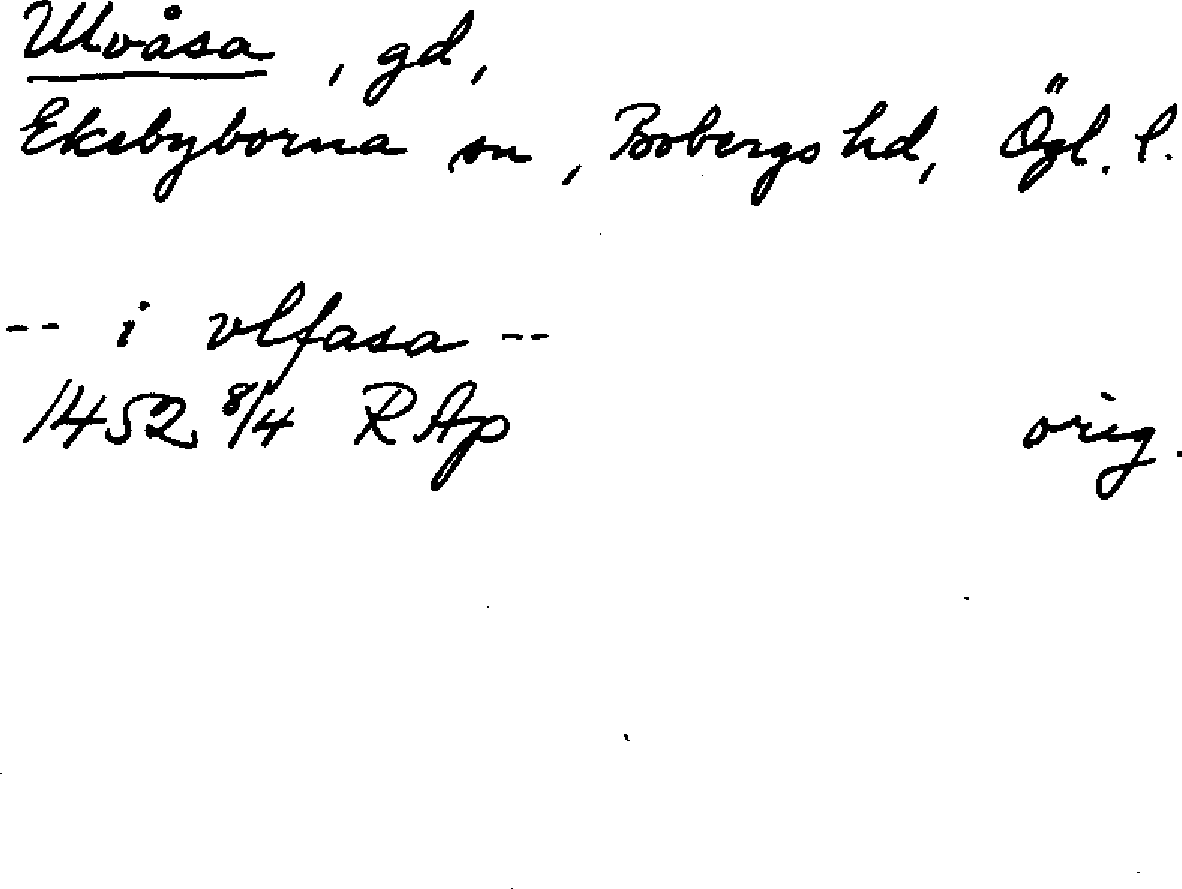 Ulvåsa, gd,
Eksbyborna sn, Bobergs hd, Ögl. l.
-- i vlfasa --
1452 8/4 RAp orig.